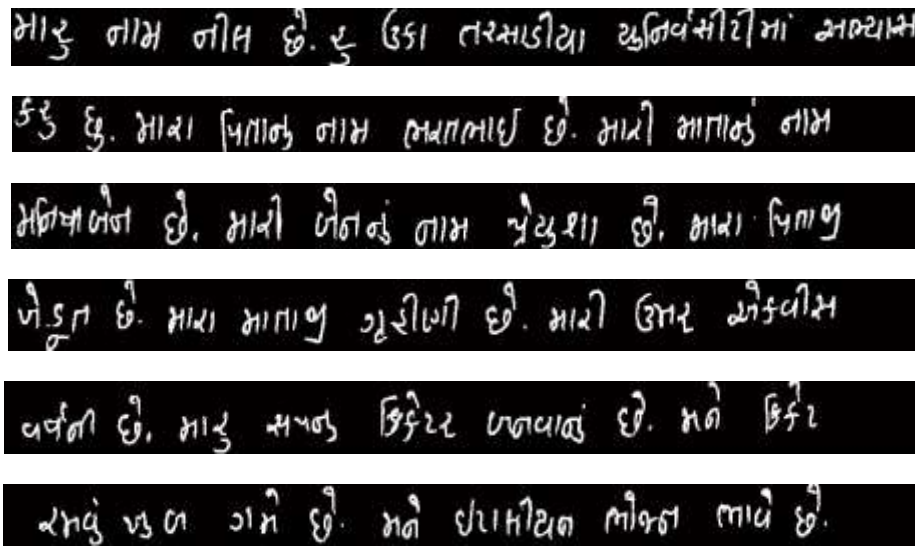 મારુ નામ નીલ છે. હુ ઉકા તરસાડીયા યુનિર્વસીટીમાં અભ્યાસ
કરુ છુ. મારા પિતાનુ નામ ભરતભાઈ છે. મારી માતાનું નામ
છે. મારી બેનનું નામ છે. મારા પિતાજી
ખેડૂત છે. મારા માતાજી ગૃહીણી છે. મારી ઉંમર એકવીસ
વર્ષની છે. મારુ સપનુ ક્રિકેટર બનવાનું છે. મને ક્રિકેટ
રમવું ખુબ ગમે છે. મને ભોજન ભાવે છે.